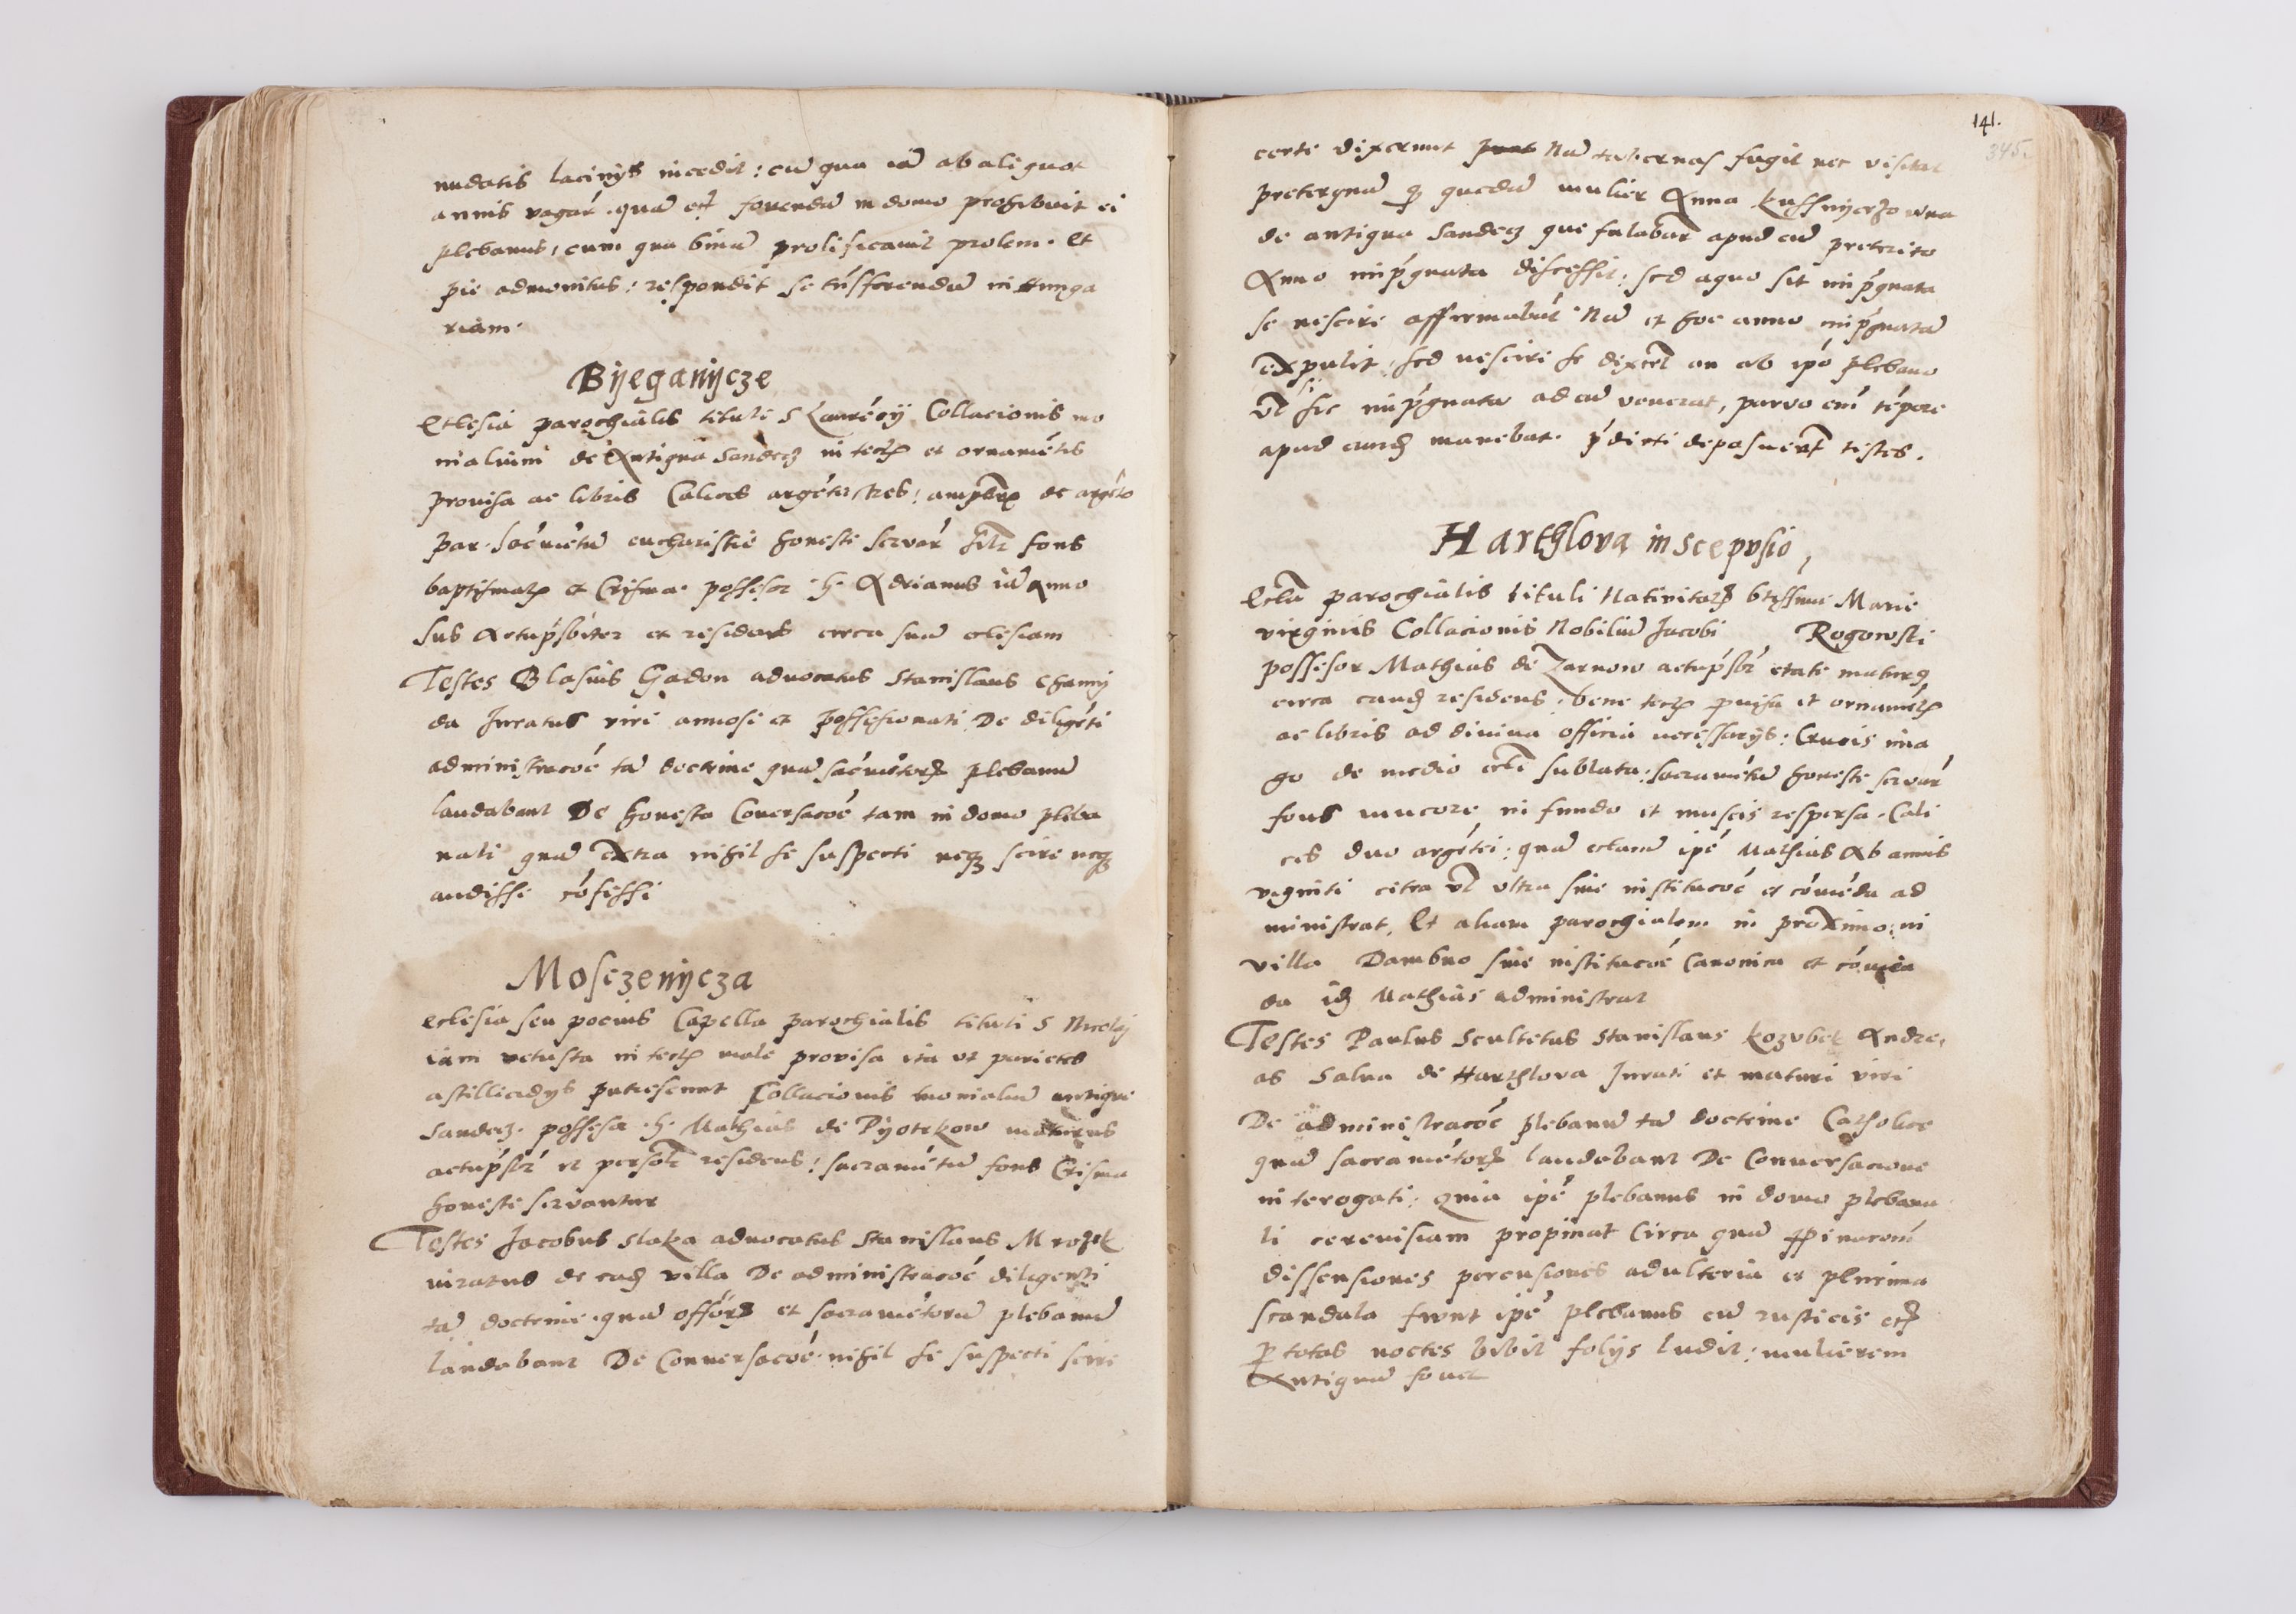 nudatis lacinys incedit : cũ qua iã ab aliquot
annis vagar̃ . quã est fovendã in domo prohibuit ei
plebanus, cum qua binã prolificavit prolem . Et
pie admonitus : respondit se trãsferendũ in Hunga
riam .
Byeganycze
Ecclesia parochialis tituli S Laurẽcÿ Collacionis mo
nialium de Antiqua Sandecz in tectꝭ et ornamẽtis
provisa ac libris Calices argẽtei tres : de argẽto
par . sacrametũ eucharistie honeste servar̃ fons
baptismatꝭ et Crisma . possesor h. Adrianus iã anno
sus actup̃sbiter et residens circa suã eclesiam
Testes Blasius Gadon advocatus Stanislaus Chamy
da Juratus viri annosi et possesionati De diligẽti
administracoẽ tã doctrine quã sacrametorꝫ plebanũ
laudabant De honesta Conversacoẽ tam in domo pleba
nali quã extra nihil se suspecti neqꝫ scire neqꝫ
audisse cõfessi
Mosczenycza
eclesia seu pocius Capella parochialis tituli S Nicolaj
iam vetusta in tectꝭ male provisa ita ut parietes
a stillicidys putrescunt Collacionis monialiũ antique
Sandecz . possesor . h . Mathias de Pyotrkow maturus
actup̃sbr̃ et residens : sacramẽtũ fons Crisma
honeste servantur
Testes Jacobus Slaka advocatus Stanislaus Mrozek
iuratus de eadꝫ villa De administracoẽ diligenti
tã doctrine . quã offõrꝫ et sacramẽtorũ plebanũ
laudabant De Conversacoẽ . nihil se suspecti scire
141.
345.
certi dixerunt Nã tabernas fugit nec visitat
preterquã qꝫ quedã mulier Anna kussnyerzowna
de antiqua Sandecz que fulabat̃ apud eũ preterito
Anno imp̃gnata discessit : sed a quo sit imp̃gnata
se nescire affirmabãt Nã et hoc anno imp̃gnatã
expulit : sed nescire se dixert̃ an ab ip̃o plebano
vl̃ si sic imp̃gnata ad eũ venerat, parvo em̃ tẽpore
apud eundꝫ manebat . p̃dicti deposuert̃ testes .
Harthlova in Scepusio,
Eccl̃a parochialis tituli Nativitatꝭ btissime Marie
virginis Collacionis Nobiliũ Jacobi Rogowski
possesor Mathias de Zarnow actup̃sbr̃ etate maturꝯ
circa eandꝫ residens . bene tectꝭ ꝓvisa et ornamẽtꝭ
ac libris ad divina officia necessarys : Crucis ima
go de medio eccl̃e sublata : sacramẽtũ honeste servar̃
fons mucore in fundo et muscis respersa . Cali
ces duo argẽtei : quã ip̃e Mathias ab annis
viginti citra vl̃ ultra sine institucoẽ et cõmẽda ad
ministrat . Et aliam parochialem in proximo : in
villa Dambno sine institucoẽ Canonica et cõmen
da idꝫ Mathias administrat
Testes Paulus Scultetus Stanislaus kozubek Andre,
as Salva de Harthlova Jurati et maturi viri
De administracoẽ plebanũ tã doctrine Catholice
quã sacramẽtorꝫ laudabant De Conversacione
interogati : quia ip̃e plebanus in domo plebana
li cerevisiam propinat Circa quã ꝓpinacom̃
dissensiones percusiones adulteria et plurima
scandala fiunt ip̃e plebanus cũ rusticis
ꝑ totas noctes bibit folys ludit : mulierem
Antiquã fovet